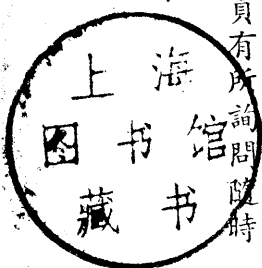 員有所詢問隨時
上海
图书馆
藏书